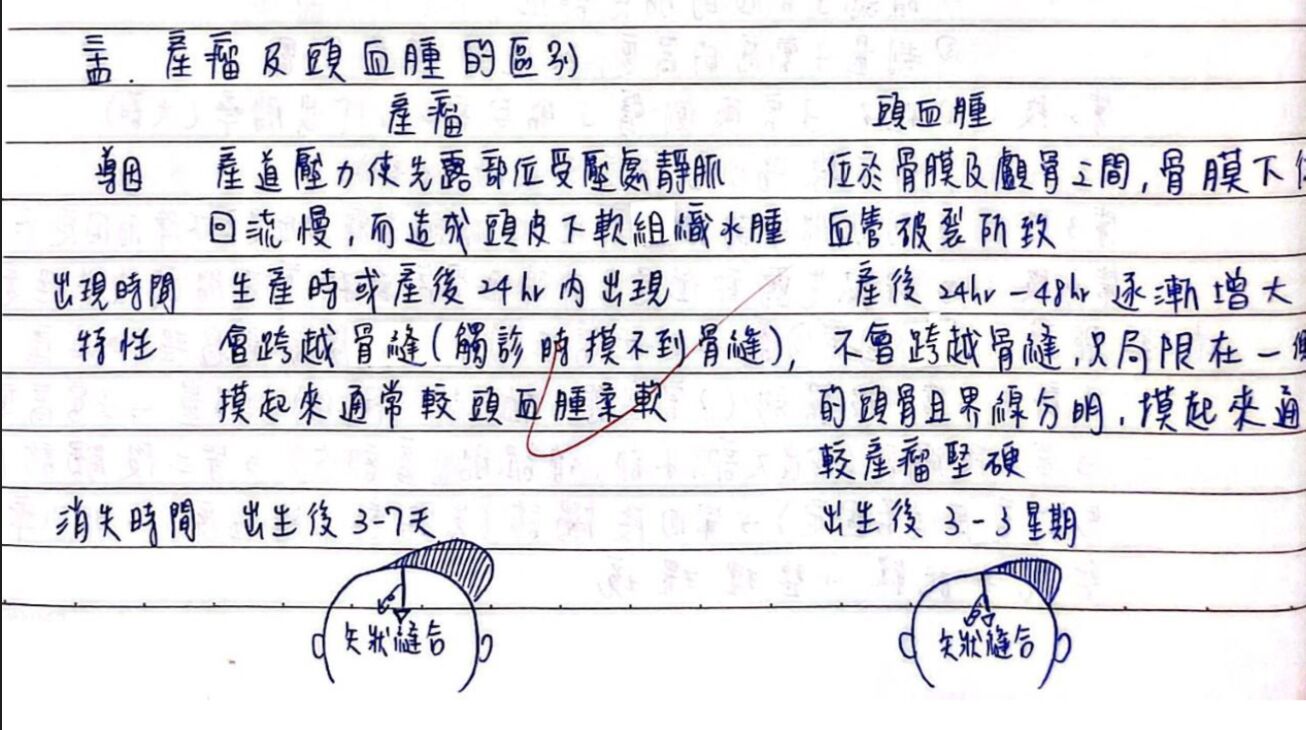 三、產瘤及頭血腫的區別
產瘤 頭血腫
導因 產道壓力使先露部位受壓處靜脈 位於骨膜及顱骨之間,骨膜下
回流慢,而造成頭皮下軟組織水腫 血管破裂所致
出現時間 生產時或產後24hr內出現 產後24hr-48hr逐漸增大
特性 會跨越骨縫(觸診時摸不到骨縫), 不會跨越骨縫,只局限在一側
摸起來通常較頭血腫柔軟 的頭骨且界線分明,摸起來通
較產瘤堅硬
消失時間 出生後3-7天 出生後 3-3星期
矢狀縫合 矢狀縫合